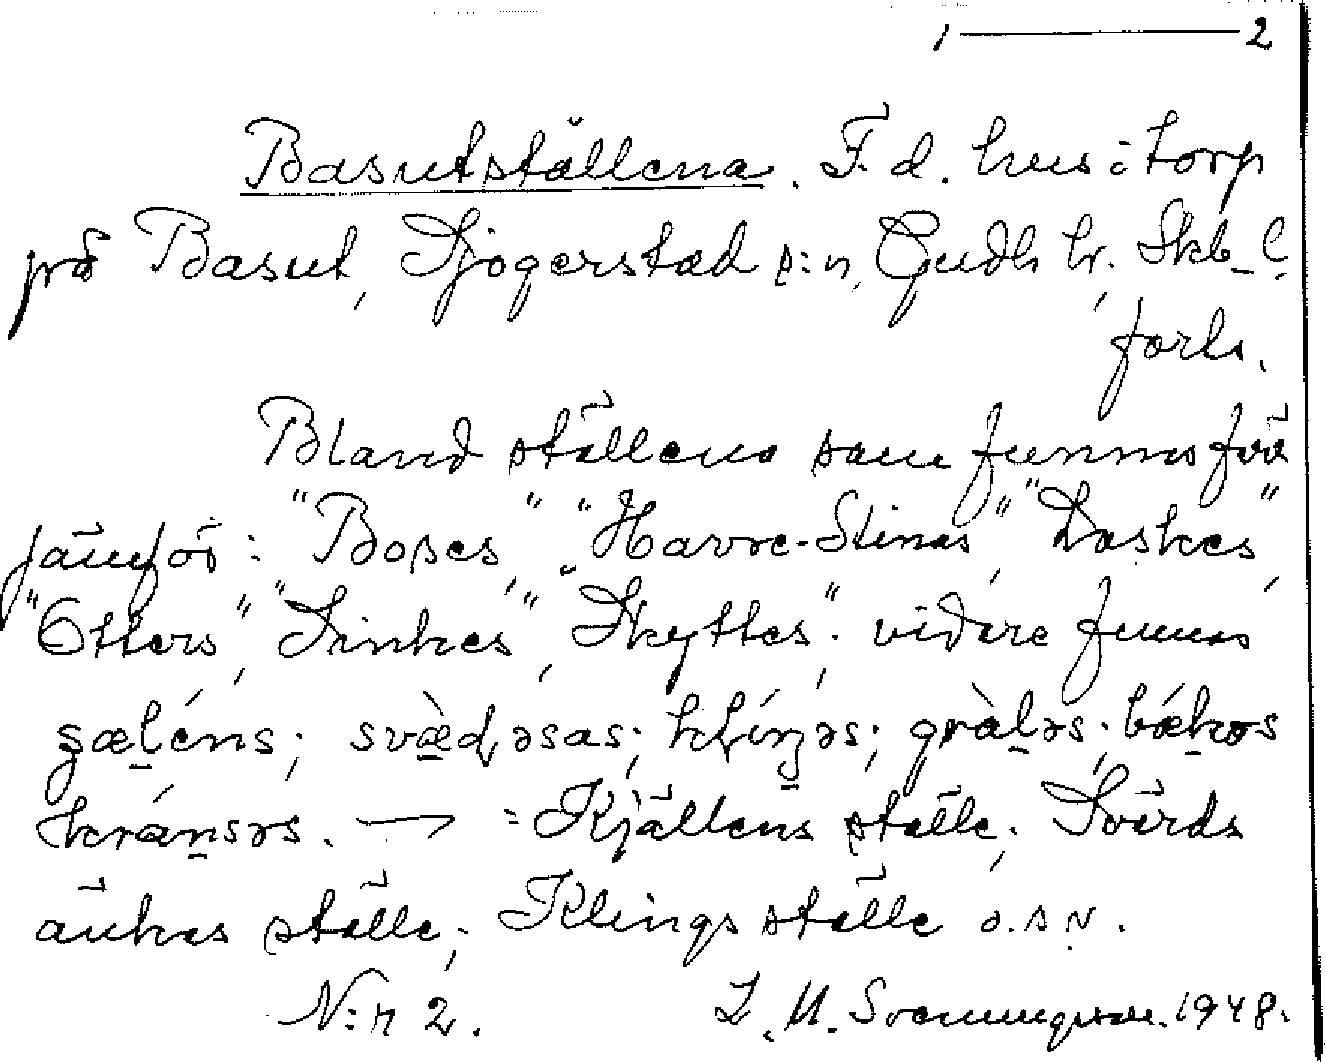 1 ——— 2
Basutställena. F. d. hus o torp
på Basut, Sjögerstad s:n, Gudh. hr. Skb. l.
forts.
Bland ställena som funnos före
jämför: "Boses", "Havre-Stinas", "Laskes",
"Otters", "Sinkes", "Skyttes"; vidare funnos
gæléns; svæ̀dəsas; klíŋəs; gràləs; bǽkəs
krǽnsəs. — = Kjällens ställe; Svärds
änkas ställe; Klings ställe o.s.v.
N:r 2. L. M. Svenungsson. 1948.